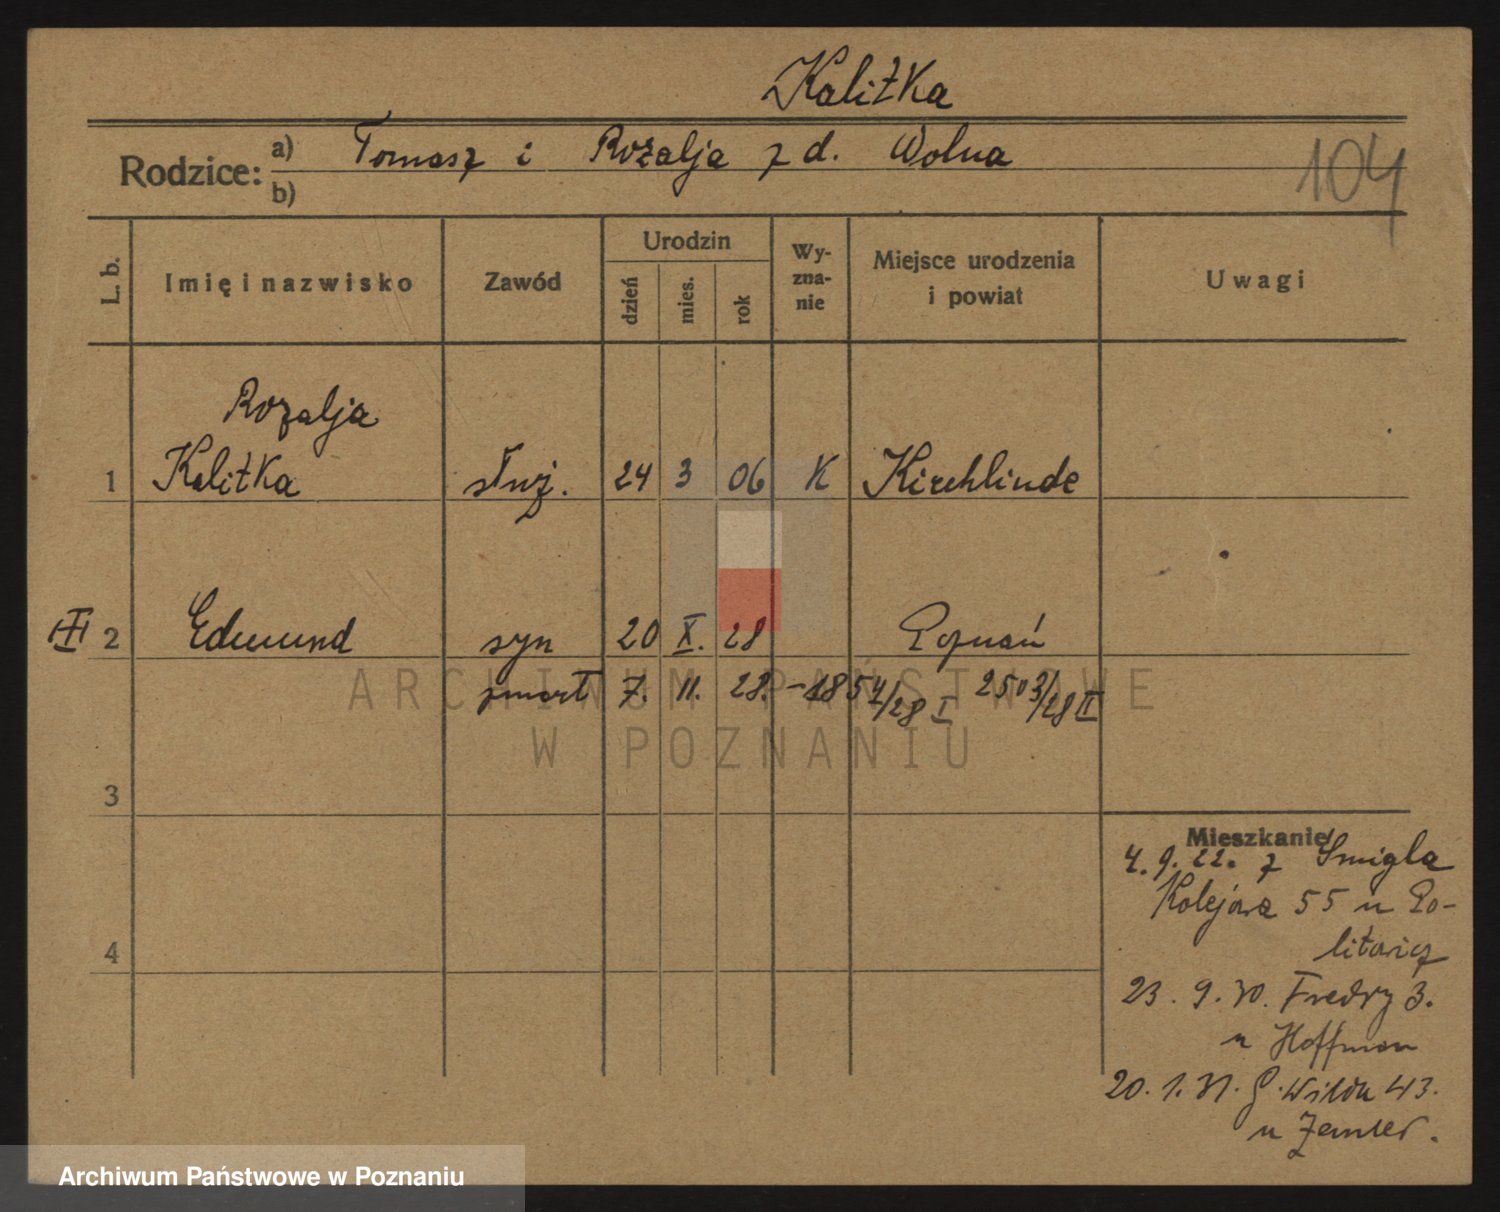 Kalitka
Rodzice: a) Tomasz i Rozalja z d. Wolna
b)
104
L. b.
Imię i nazwisko
Zawód
Urodzin
dzień
mies.
rok
Wy-
zna-
nie
Miejsce urodzenia
i powiat
Uwagi
Rozalja
1 Kalitka służ. 24 3 06 K Kirchlinde
II 2 Edmund syn 20 X. 28 Poznań
zmarł 7. 11. 28. - 1854/28 I 2503/28 II
ARCHIWUM PAŃSTWOWE
W POZNANIU
3
4
Mieszkanie
4. 9. 22. z Śmigla
Kolejowa 55 u Po-
litowicz
23. 9. 30. Fredry 3.
u Hoffman
20. 1. 31. G. Wilda 43.
u Zemler.
Archiwum Państwowe w Poznaniu